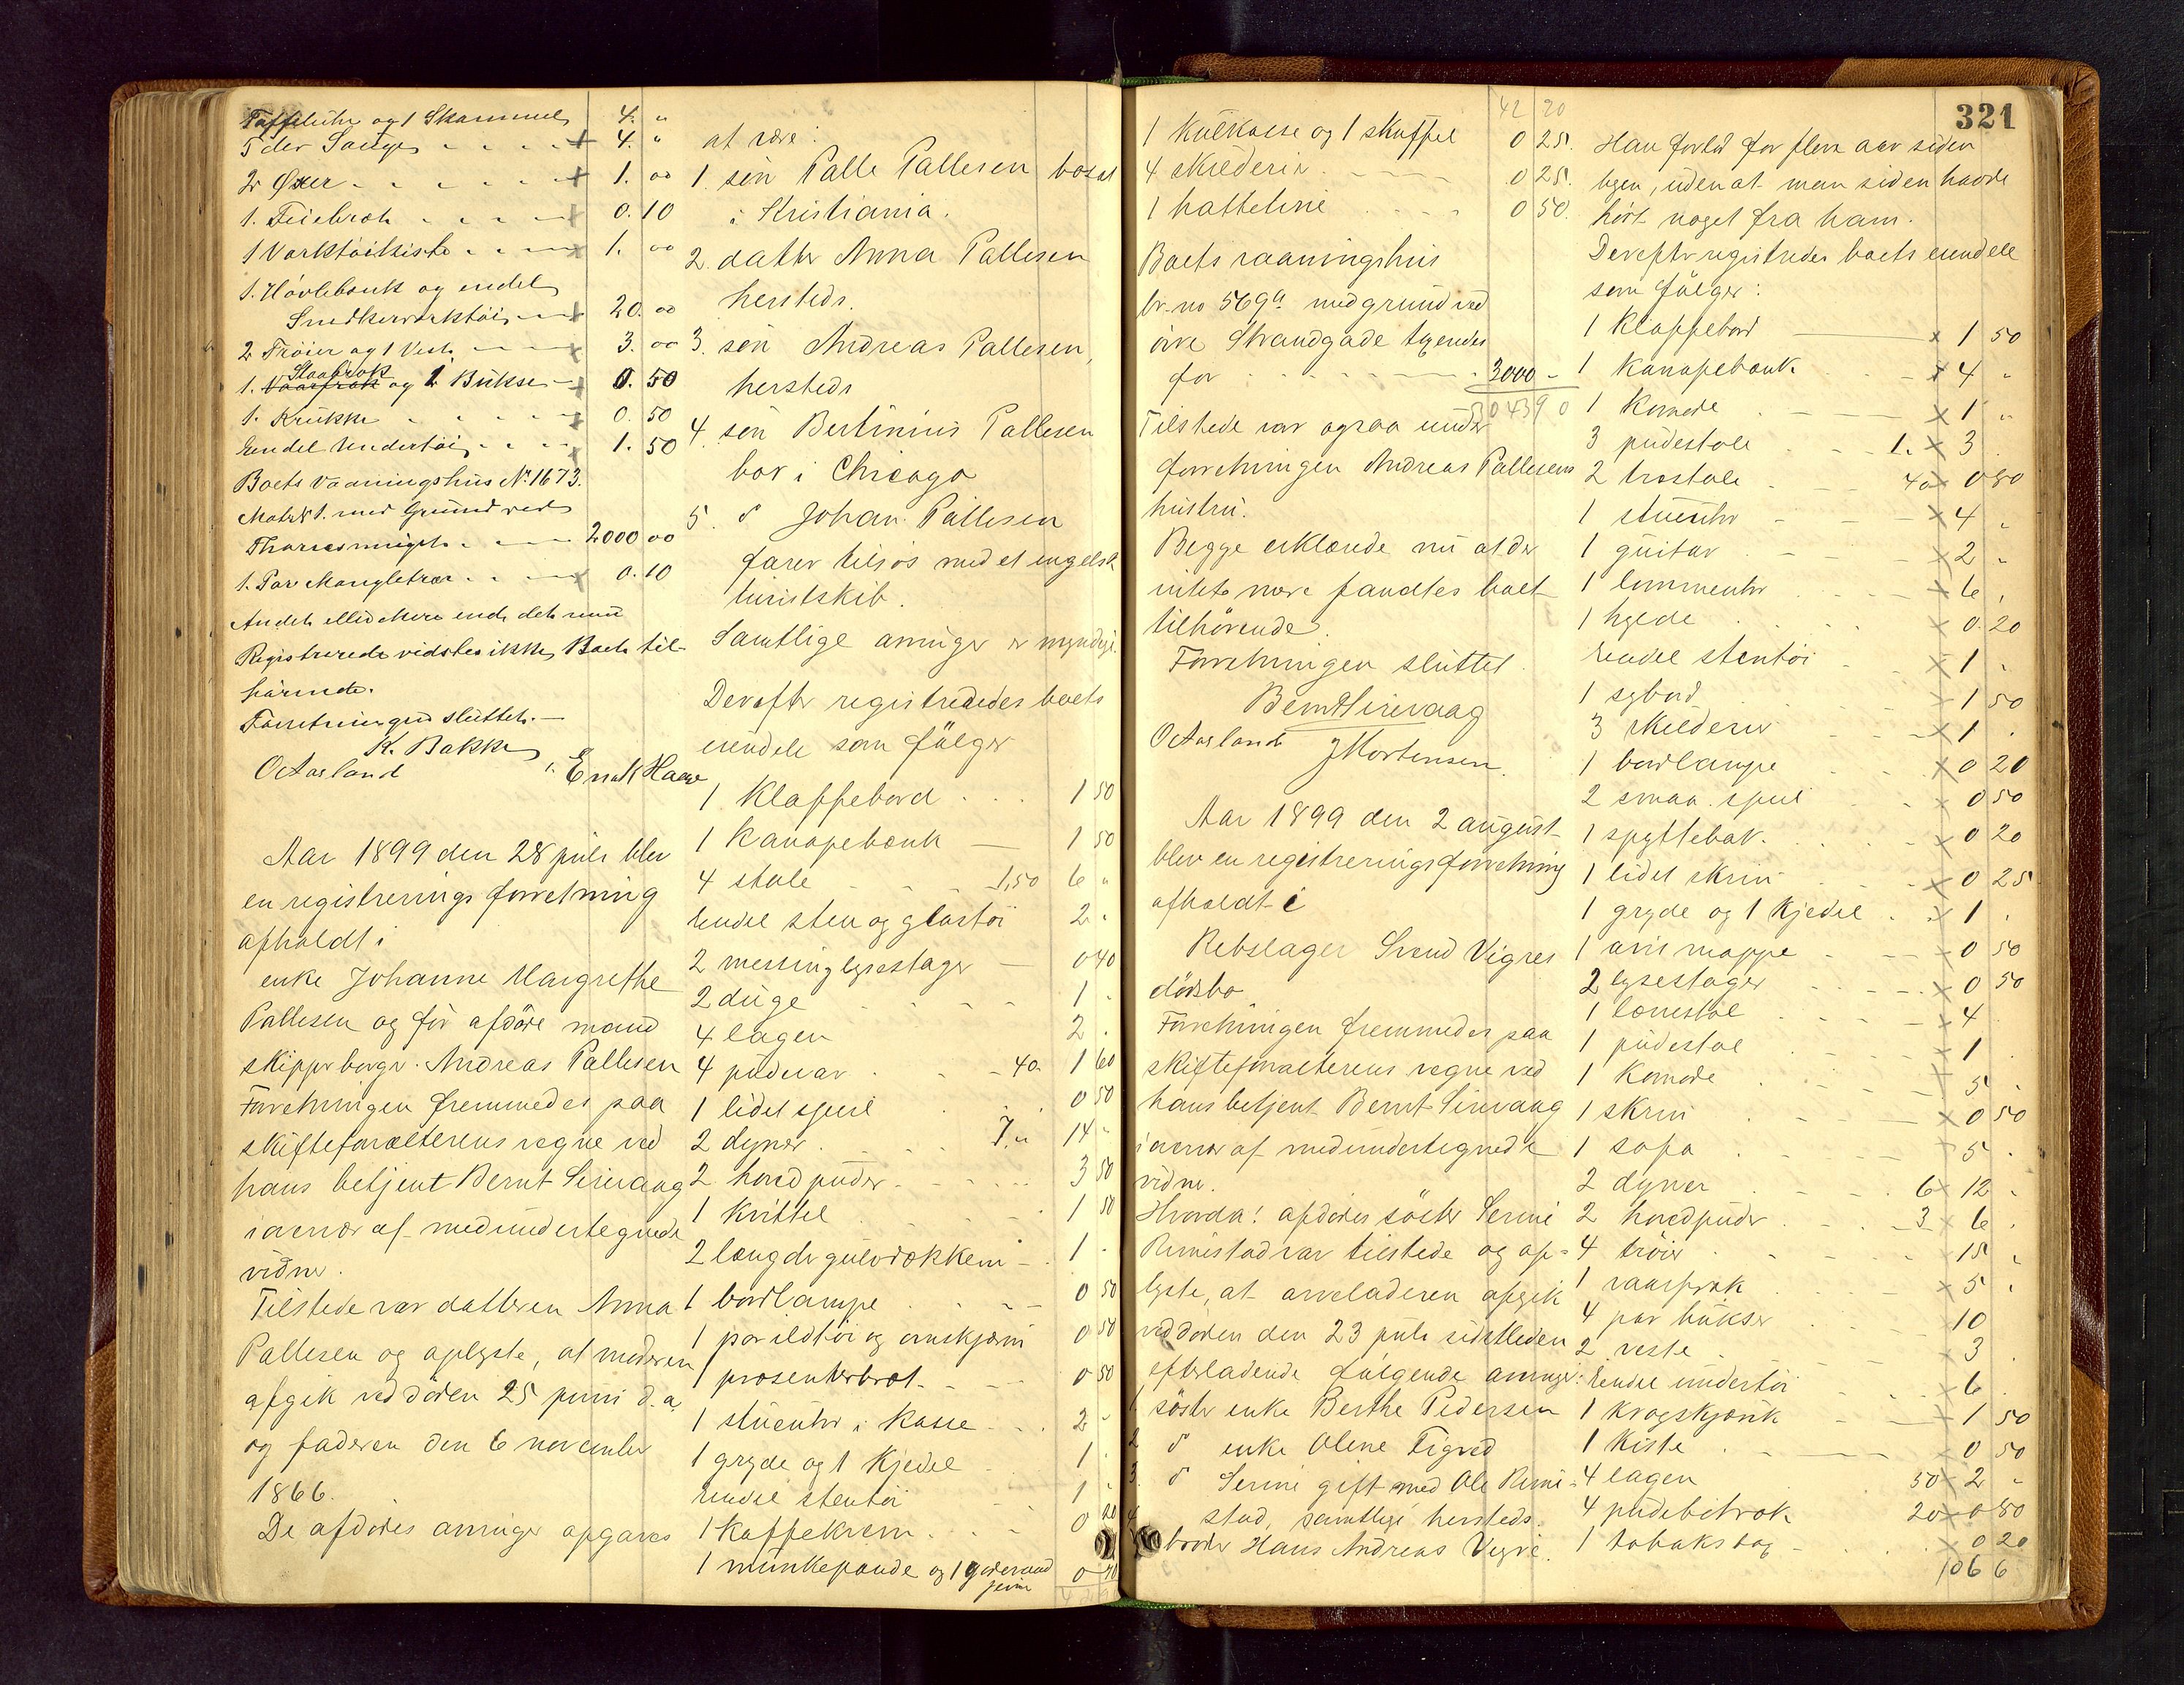 Taffeluhr og 1 Skammel 4. "
5 der Senge + 4. "
2 Øxer + 1. 00
1. Feiebræt 0.10
1 Værktøikiste 1. 00
1. Høvlebænk og endel
Snedkerværktøi 20. 00
2 Trøier og 1 Vest 3. 00
Slaabrok
1. Vaarfrak og 1 Bukse 0. 50
1. Krukke 0. 50
Endel Undertøi 1. 50
Boets Vaaningshus No 1673.
med Grund ved
2000 00
1. Par Mangletrær 0. 10
Andet eller Mere end det nu
Registrerede vidstes ikke Boets til-
hørende.
Forretningen sluttet. —
K. Bakke
O Aarsland Enok Haave
Aar 1899 den 28 juli blev
en registreringsforretning
afholdt i
enke Johanne Margrethe
Pallesen og før afdöde mand
skipper borger Andreas Pallesen
Forretningen fremmedes paa
skifteforvalterens vegne ved
hans betjent Bernt Sirevaag
i overvær af medundertegnede
vidner.
Tilstede var datteren Anna
Pallesen og oplyste, at moderen
afgik ved döden 25 juni d. a.
og faderen den 6 november
1866.
De afdödes arvinger opgaves
at være:
1. sön Palle Pallesen bosat
i Kristiania.
2. datter Anna Pallesen
hersteds.
3. sön Andreas Pallesen,
hersteds
4. sön Bertinius Pallesen
bor i Chicago
5. d Johan Pallesen
farer tilsjös med et engelsk
turistskib.
Samtlige arvinger er myndige.
Derefter registreredes boets
eiendele som fölger
1 Klappebord 1 50
1 Kanapebænk 1 50
4 stole 1,50 6 "
Endel sten og glastöi 2 "
2 messing lysestager 0 40
2 duge 1 "
4 lagen 2 "
4 pudevar 40. 1 60
1 lidet speil 0 50
2 dyner 7." 14 "
2 hovedpuder 3 50
1 Kvittel 1 50
2 længder gulvdækken 1 "
1 bordlampe 0 50
1 par ildtöi og ovnskjærm 0 50
1 præsenterbræt 0 50
1 stueuhr i Kasse 2 "
1 gryde og 1 Kjedel 1 "
Endel stentöi 1 "
1 Kaffekværn 0 20
1 munkepande og 1 goderaad
jern 0 40
321
42 20
1 Kulkasse og 1 skuffel 0 25.
4 skilderier 0 25.
1 hatteline 0 50.
Boets vaaningshus
br. no 569a med grund ved
övre Strandgade tyendes
for 3000 -
30439 0
Tilstede var ogsaa under
forretningen Andreas Pallesens
hustru.
Begge erklærede nu at der
intet mere fandtes boet
tilhörende.
Forretningen sluttet.
Bernt Sirevaag
O Aarsland J Mortensen.
Aar 1899 den 2 august
blev en registreringsforretning
afholdt i
Rebslager Svend Vigres
dödsbo
Forretningen fremmedes paa
skifteforvalterens vegne ved
hans betjent Bernt Sirevaag
i overvær af medundertegnede
vidner.
Hvorda! afdödes söster Serine
Rimestad var tilstede og op-
lyste, at arveladeren afgik
ved döden den 23 juli sidstleden
efterladende fölgende arvinger:
1 söster enke Berthe Pedersen
2 d enke Oline Tigved
3. d Serine gift med Ole Rime-
stad, samtlige hersteds.
broder Hans Andreas Vegre.
Han forlod for flere aar siden
byen, uden at man siden havde
hört noget fra ham.
Derefter registredes boets eiendele
som fölger:
1 Klappebord x 1 50
1 Kanapebænk x 4 "
1 Komode x 1 "
3 pudestole 1. x 3
2 træstole 40 x 0 80
1 stueuhr x 4 "
1 guitar x 2 "
1 lommeuhr x 6 "
1 hylde x 0. 20
Endel stentöi x 1 "
1 sybord x 1 50
3 skilderier x 1 .
1 bordlampe x 0 20
2 smaa speil x 0 50
1 spyttebak. x 0 20
1 lidet skrin x 0 25
1 gryde og 1 Kjedel x 1 "
1 avis mappe 0 50
2 lysestager x 0 50
1 lænestol x 4
1 pudestol x 1 .
1 Komode 5 "
1 skrin x 0 50
1 sofa 5 .
2 dyner 6 x 12 "
2 hovedpuder 3 x 6 .
4 tröier 15 "
1 vaarfrak x 5 "
4 par bukser 10
2 veste 3 .
Endel undertöi x 6 .
1 kragskjænk x 1 50
1 Kiste x 0 50
4 lagen 50 x 2 "
4 pudebetræk 20 x 0 80
1 tobaks x 0 20
106 6